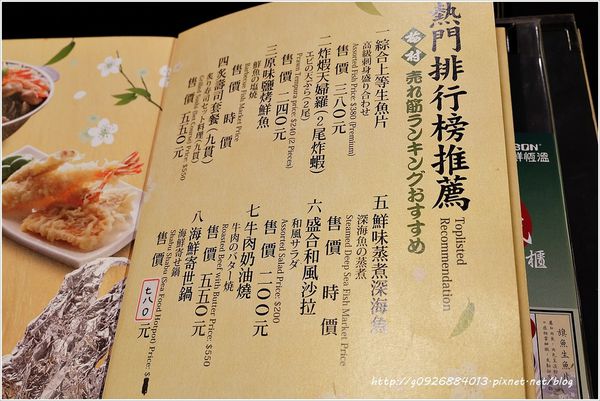 熱門排行榜推薦
梅村
売れ筋ランキングおすすめ
Toplisted
Recommendation
一綜合上等生魚片
高級刺身盛り合わせ
Assorted Fish Price: $380 (Premium)
售價 三八〇元
二炸蝦天婦羅(2尾炸蝦)
エビの天ぷら(2尾)
Prawn Tempura price: $240 (2 Pieces)
售價 二四〇元
三原味鹽烤鮮魚
鮮魚の塩焼
Barbecue Fish Market Price
售價 時價
四炙壽司套餐(九貫)
炙り寿司セット料理(九貫)
售價 五五〇元
五鮮味蒸煮深海魚
深海魚の蒸煮
Steamed Deep Sea Fish Market Price
售價 時價
六盛合和風沙拉
和風サラダ
Assorted Salad Price: $200
售價 二〇〇元
七牛肉奶油燒
牛肉のバター焼
Roasted Beef with Butter Price: $550
售價 五五〇元
八海鮮寄世鍋
海鮮寄せ鍋
Shabu Shabu (Sea Food Hotpot) Price: $
售價 七八〇元
BON
鮮恆溫
櫃
旗魚生魚
http://g0926884013.pixnet.net/blog